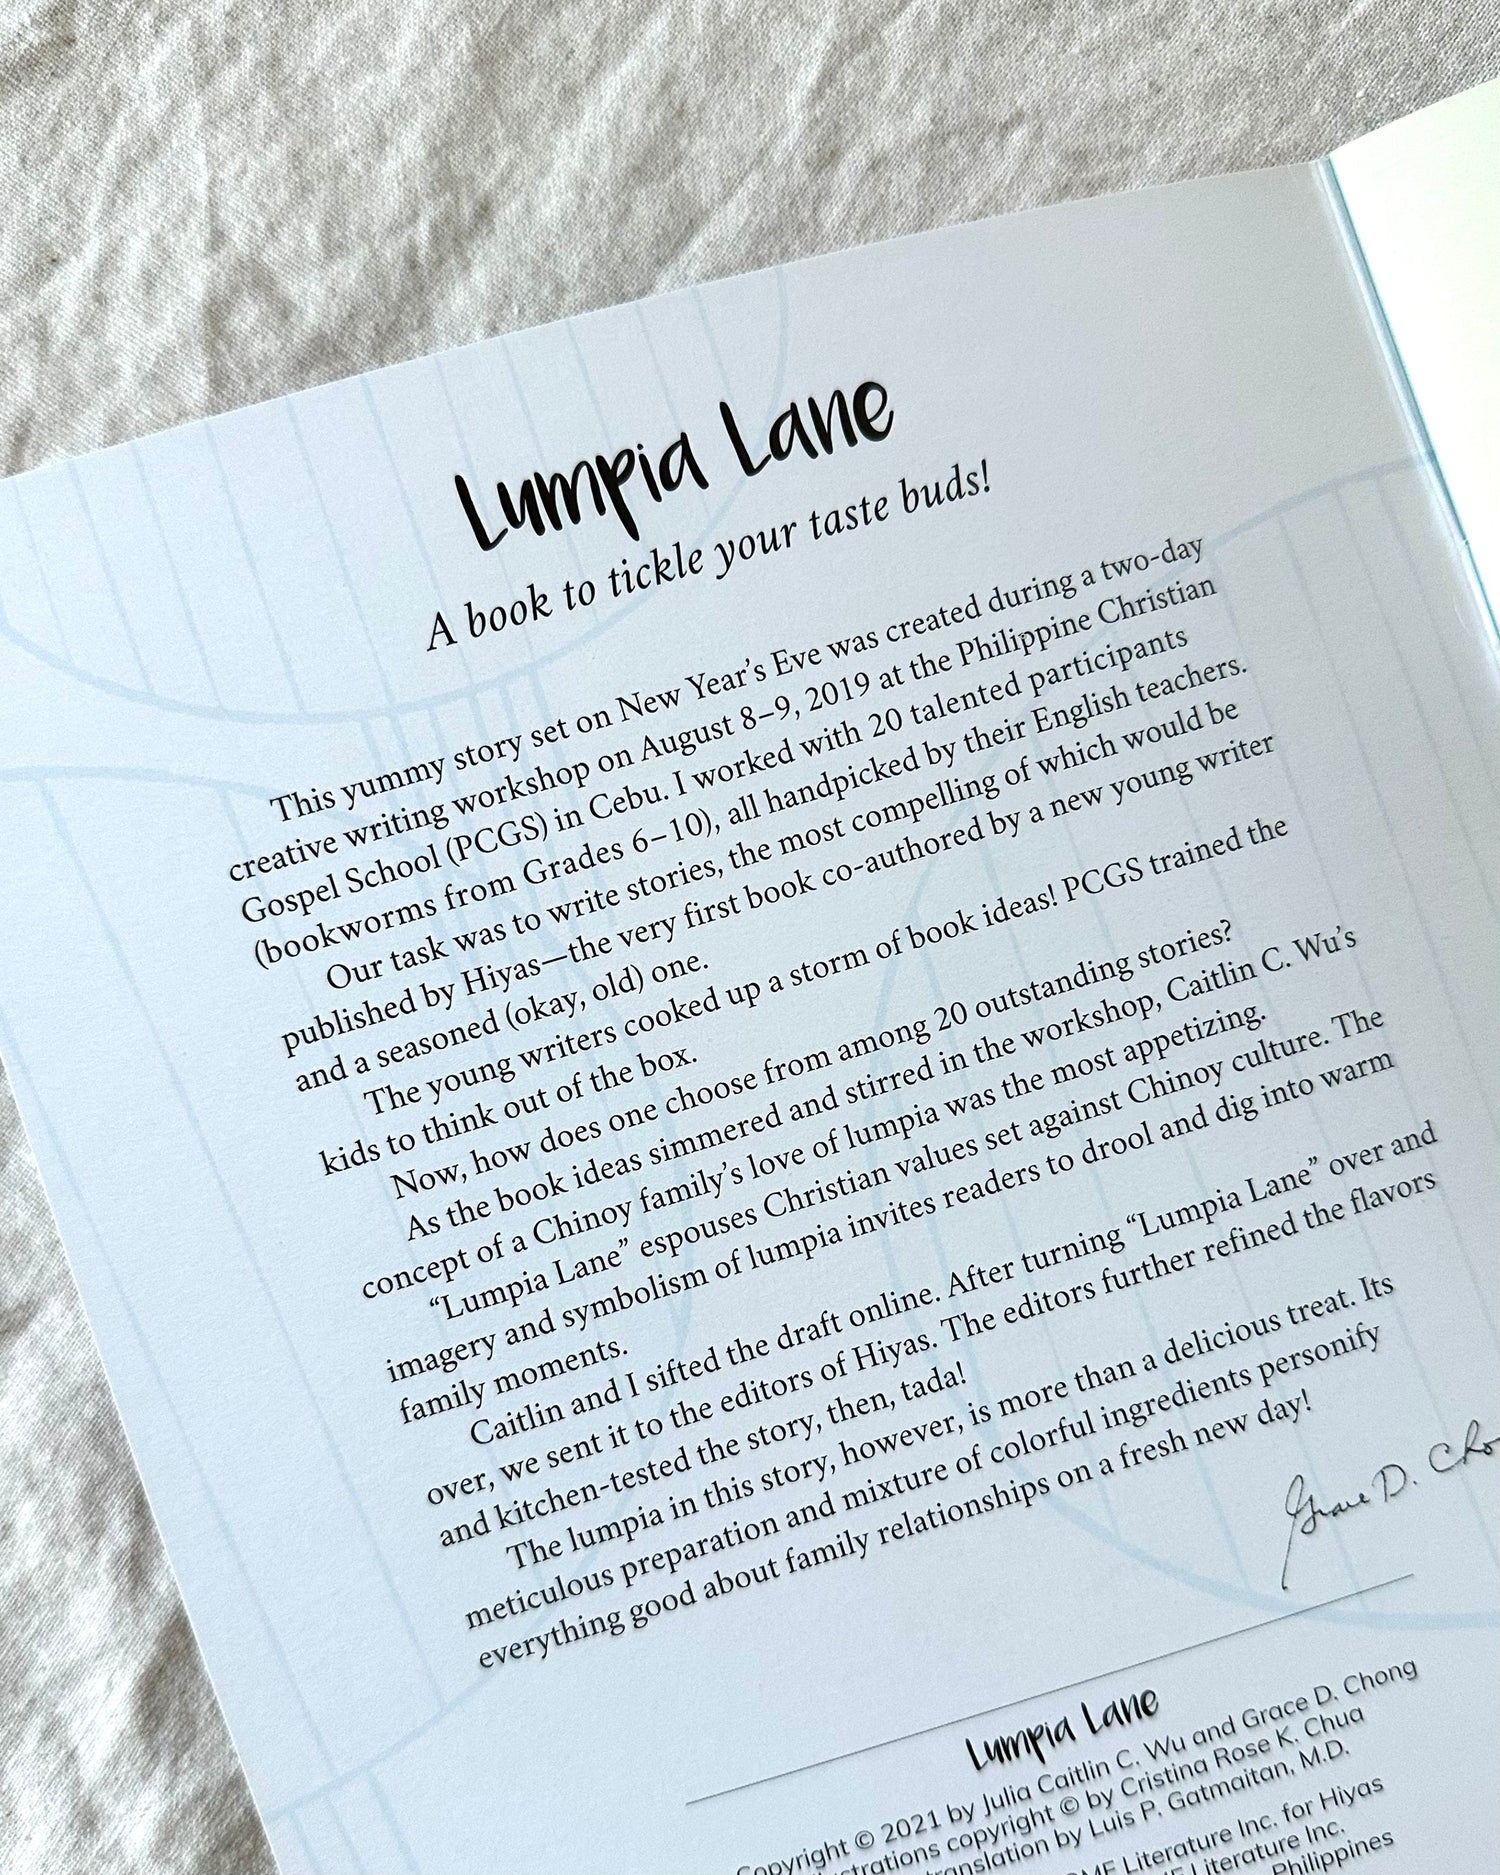 Lumpia Lane
A book to tickle your taste buds!
This yummy story set on New Year's Eve was created during a two-day
creative writing workshop on August 8–9, 2019 at the Philippine Christian
Gospel School (PCGS) in Cebu. I worked with 20 talented participants
(bookworms from Grades 6–10), all handpicked by their English teachers.
Our task was to write stories, the most compelling of which would be
published by Hiyas—the very first book co-authored by a new young writer
and a seasoned (okay, old) one.
The young writers cooked up a storm of book ideas! PCGS trained the
kids to think out of the box.
Now, how does one choose from among 20 outstanding stories?
As the book ideas simmered and stirred in the workshop, Caitlin C. Wu's
concept of a Chinoy family's love of lumpia was the most appetizing.
“Lumpia Lane” espouses Christian values set against Chinoy culture. The
imagery and symbolism of lumpia invites readers to drool and dig into warm
family moments.
Caitlin and I sifted the draft online. After turning “Lumpia Lane” over and
over, we sent it to the editors of Hiyas. The editors further refined the flavors
and kitchen-tested the story, then, tada!
The lumpia in this story, however, is more than a delicious treat. Its
meticulous preparation and mixture of colorful ingredients personify
everything good about family relationships on a fresh new day!
Grace D.
Lumpia Lane
Copyright © 2021 by Julia Caitlin C. Wu and Grace D. Chong
copyright © by Cristina Rose K. Chua
by Luis P. Gatmaitan, M.D.
Literature Inc. for Hiyas
Literature Inc.
Philippines